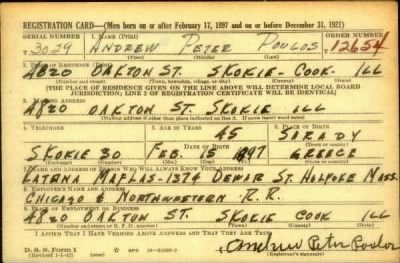 REGISTRATION CARD—(Men born on or after February 17, 1897 and on or before December 31, 1921)
SERIAL NUMBER 1. NAME (Print) ORDER NUMBER
T 3029 ANDREW PETER POULOS 12654
(First) (Middle) (Last)
2. PLACE OF RESIDENCE (Print)
4820 OAKTON ST. SKOKIE - COOK - ILL
(Number and street) (Town, township, village, or city) (County) (State)
[THE PLACE OF RESIDENCE GIVEN ON THE LINE ABOVE WILL DETERMINE LOCAL BOARD
JURISDICTION; LINE 2 OF REGISTRATION CERTIFICATE WILL BE IDENTICAL]
3. MAILING ADDRESS
4820 OAKTON ST. SKOKIE ILL
[Mailing address if other than place indicated on line 2. If same insert word same]
4. TELEPHONE 5. AGE IN YEARS 6. PLACE OF BIRTH
45 SARADY
DATE OF BIRTH
SKOKIE 30 FEB. 15 1897 GREECE
(Exchange) (Number) (Mo.) (Day) (Yr.) (State or country)
7. NAME AND ADDRESS OF PERSON WHO WILL ALWAYS KNOW YOUR ADDRESS
1374 ST. HOLYOKE MASS.
8. EMPLOYER'S NAME AND ADDRESS
CHICAGO & NORTHWESTERN R.R.
9. PLACE OF EMPLOYMENT OR BUSINESS
4820 OAKTON ST. SKOKIE COOK ILL
(Number and street or R. F. D. number) (Town) (County) (State)
I AFFIRM THAT I HAVE VERIFIED ABOVE ANSWERS AND THAT THEY ARE TRUE.
D. S. S. Form 1
(Revised 1-1-42) GPO 16—21630-2
Andrew Peter Poulos